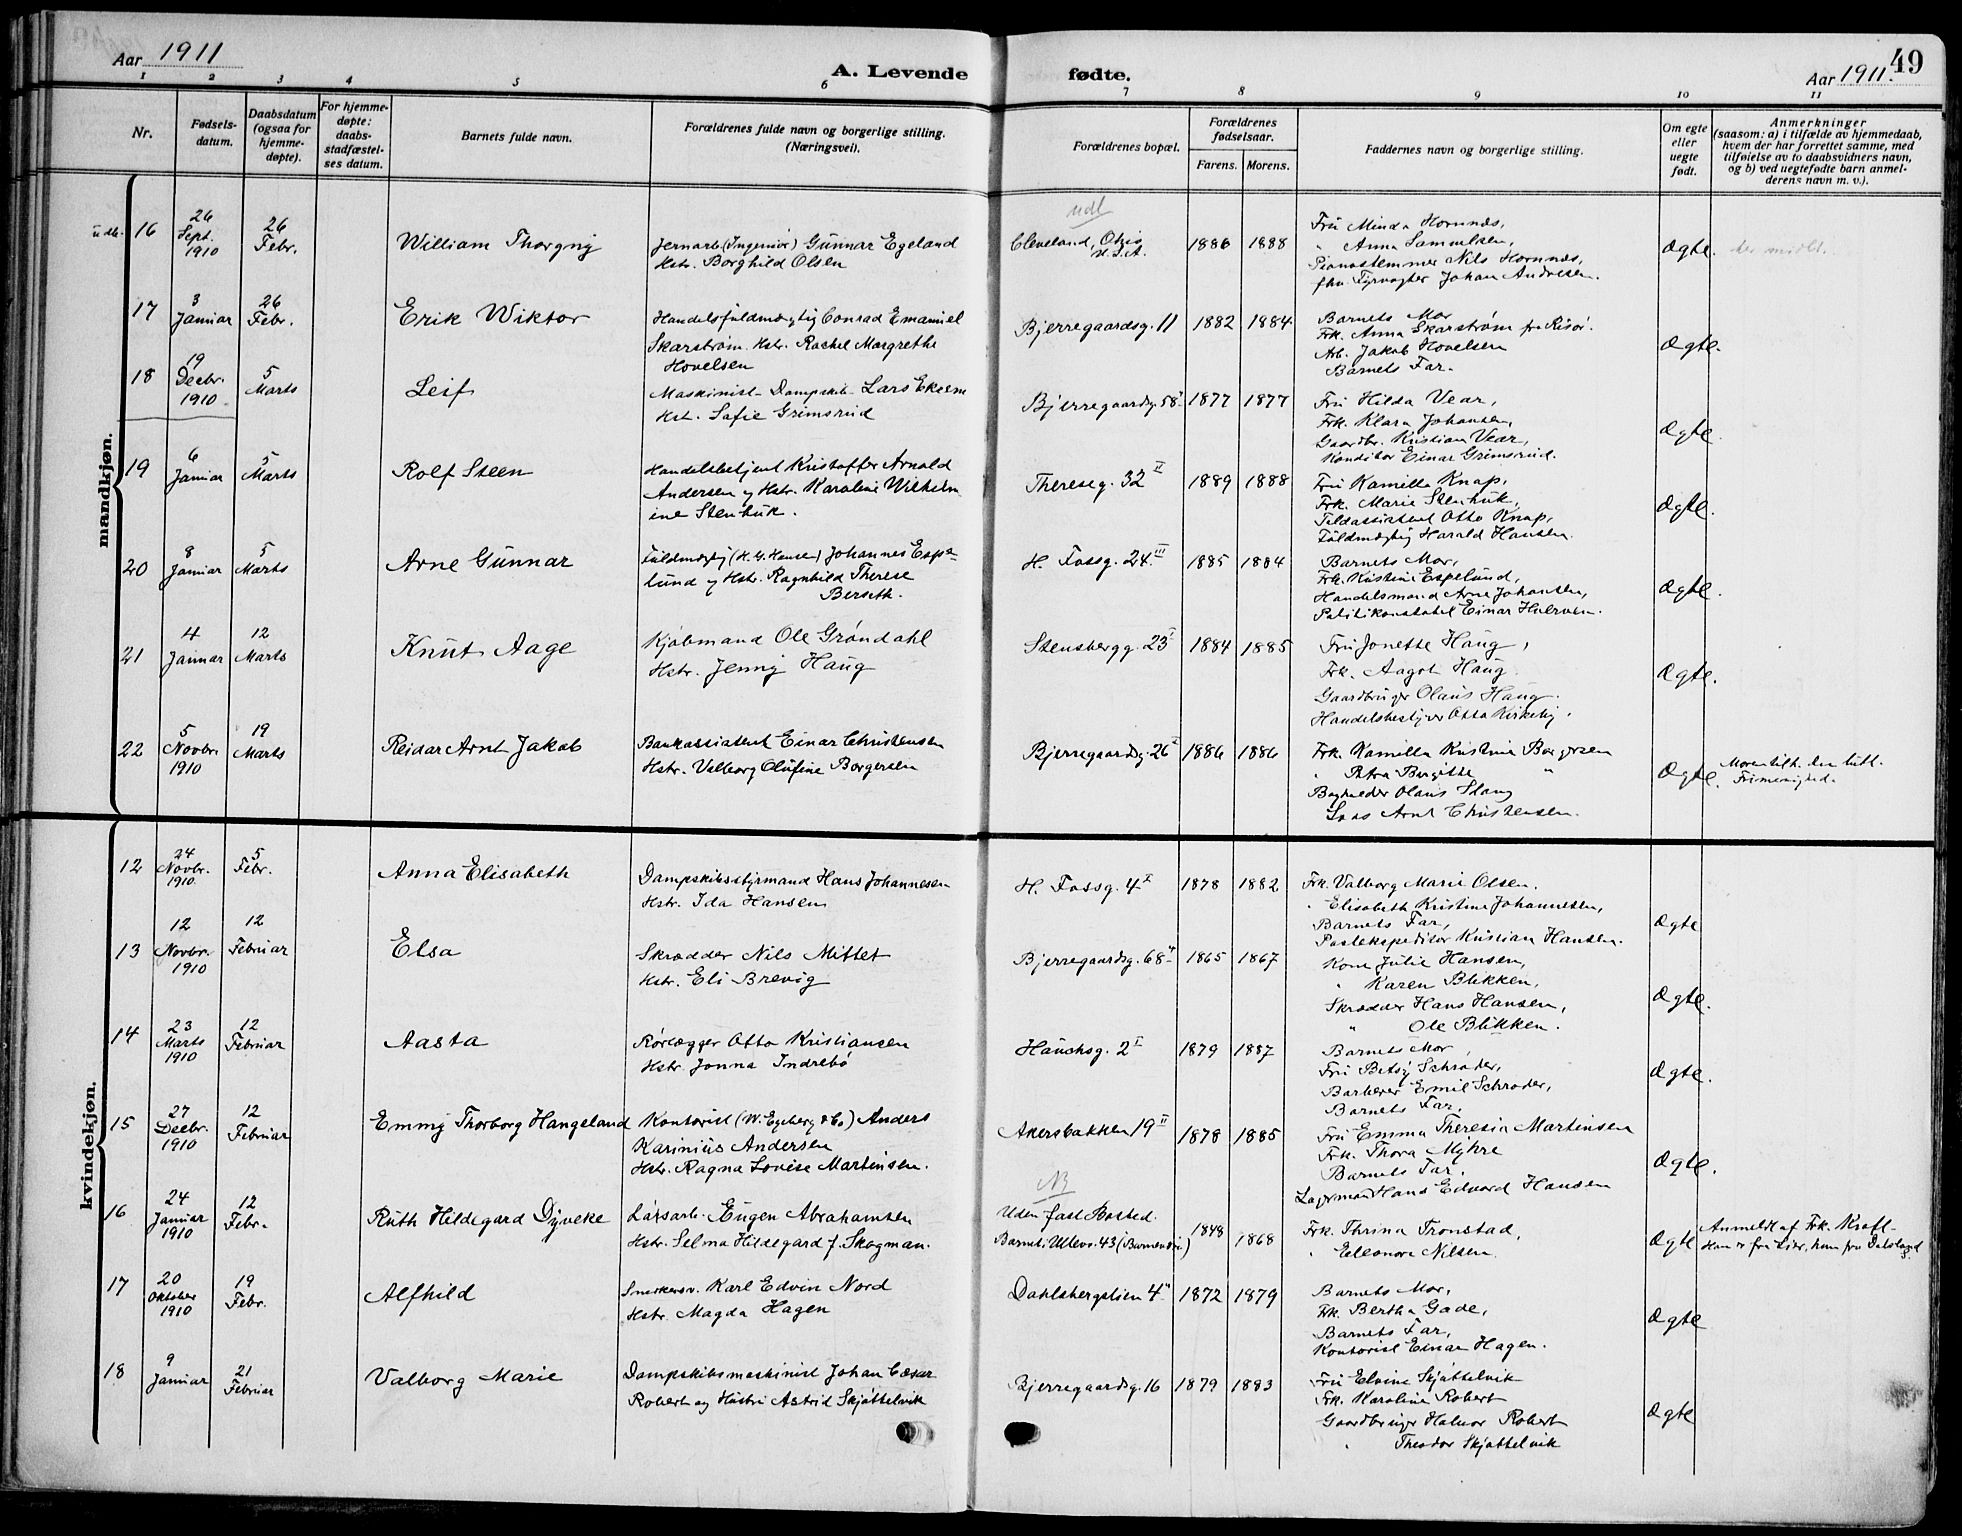 Aar 1911
A. Levende
fødte.
Aar 1911.
49
1 2 3 4 5 6 7 8 9 10 11
Nr.
Fødsels-
datum.
Daabsdatum
(ogsaa for
hjemme-
døpte).
For hjemme-
døpte:
daabs-
stadfæstel-
ses datum.
Barnets fulde navn.
Forældrenes fulde navn og borgerlige stilling.
(Næringsvei).
Forældrenes bopæl.
Forældrenes
fødselsaar.
Farens. Morens.
Faddernes navn og borgerlige stilling.
Om egte
eller
uegte
født.
Anmerkninger
(saasom: a) i tilfælde av hjemmedaab,
hvem der har forrettet samme, med
tilføielse av to daabsvidners navn,
og b) ved uegtefødte barn anmel-
derens navn m. v.).
mandkjøn.
udl.
16
26
Sept.
1910
26
Febr.
William Thorgny
Jernarb. (Ingeniør) Gunnar Egeland
Hstr. Borghild Olsen
udl
Cleveland, Ohio
U.S.A.
1886 1888
Fru Minda Hornnæs,
" Anna Samuelsen,
Pianostemmer Nils Hornnæs,
fhv. Fyrvogter Johan Andresen.
Ægte.
17
3
Januar
26
Febr.
Erik Wiktor
Handelsfuldmægtig Conrad Emanuel
Skarstrøm. Hstr. Rachel Margrethe
Hovelsen
Bjerregaardsg. 11
1882 1884
Barnets Mor
Frk. Anna Skarstrøm fra Risør.
Arb. Jakob Hovelsen
Barnets Far.
Ægte.
18
19
Decbr.
1910
5
Marts
Leif
Maskinist Dampskib Lars Ekeem
Hst. Safie Grimsrud
Bjerregaardsg. 58
1877 1877
Fru Hilda Vear,
Frk. Klara Johansen,
Gaardbr. Kristian Vear,
Konditor Einar Grimsrud.
Ægte.
19
6
Januar
5
Marts
Rolf Steen
Handelsbetjent Kristoffer Arnold
Andersen og Hstr. Karoline Wilhelm
ine Stenhuk.
Thereseg. 32 II
1889 1888
Fru Kamilla Knap,
Frk. Marie Stenhuk,
Toldassistent Otto Knap,
Fuldmægtig Harald Hansen.
Ægte.
20
8
Januar
5
Marts
Arne Gunnar
Fuldmægtig (H. G. Hansen) Johannes Espe-
lund og Hstr. Ragnhild Therese
Berseth.
H. Fossg. 24 III
1885 1884
Barnets Mor,
Frk. Kristine Espelund,
Handelsmand Arne Johansen,
Politikonstabel Einar Halvorsen.
Ægte.
21
4
Januar
12
Marts
Knut Aage
Kjøbmand Ole Grøndahl
Hstr. Jenny Haug
Stensbergg. 23 I
1884 1885
Fru Jonette Haug,
Frk. Aagot Haug.
Gaardbruger Olaus Haug.
Handelsbestyrer Otto Kirkeby.
Ægte.
22
5
Novbr.
1910
19
Marts
Reidar Arnt Jakob
Bankassistent Einar Christensen
Hstr. Valborg Olufine Borgersen
Bjerregaardsg. 26 I
1886 1886
Frk. Kamilla Kristine Borgersen
" Petra Birgitte "
Olaus Stang
Arnt Christensen.
Ægte.
Moren tilh. den luth.
Frimenighed.
kvindekjøn.
12
24
Novbr.
1910.
5
Febr.
Anna Elisabeth
Dampskibsstyrmand Hans Johannesen
Hstr. Ida Hansen
H. Fossg. 4 I
1878 1882
Frk. Valborg Marie Olsen.
" Elisabeth Kristine Johannessen,
Barnets Far,
Postekspeditør Kristian Hansen.
Ægte
13
12
Novbr.
1910
12
Februar
Elsa
Skrædder Nils Mittet
Hstr. Eli Brevig
Bjerregaardsg. 68 II
1865 1867
Kone Julie Hansen,
" Karen Blikken,
Skrædder Hans Hansen,
" Ole Blikken.
Ægte.
14
23
Marts
1910
12
Februar
Aasta
Rørlægger Otto Kristiansen
Hstr. Jonna Indrebø
Hauchsg. 2 I
1879 1887
Barnets Mor,
Fru Betsy Schrøder,
Barberer Emil Schrøder,
Barnets Far.
Ægte.
15
27
Decbr.
1910
12
Februar
Emmy Thorborg Hangeland
Kontorist (W. Egeberg & Co) Anders
Karinius Andersen
Hstr. Ragna Lovise Martinsen.
Akersbakken 19 II
1878 1885
Fru Emma Theresia Martinsen
Frk. Thora Myhre
Barnets Far.
Lagermand Hans Edvard Hansen
Ægte.
16
24
Januar
1910
12
Febr.
Ruth Hildegard Dyveke
Løsarb. Eugen Abrahamsen
Hstr. Selma Hildegard f. Skogman.
NB
Uden fast Bosted.
Barnet: Ullevv. 43 (Barneasyl)
1848 1868
Frk. Thrina Tronstad,
" Elleonora Nilsen.
Ægte
Anmeldt af Frk. Kraft
Han er fra Lier, hun fra Dalsland
17
20
Oktober
1910
19
Febr.
Alfhild
Snekkersv. Karl Edvin Nord
Hstr. Magda Hagen
Dahlsbergstien 4 II
1872 1879
Barnets Mor,
Frk. Bertha Gade,
Barnets Far,
Kontorist Einar Hagen.
Ægte
18
9
Januar
21
Februar
Valborg Marie
Dampskibsmaskinist Johan Cæsar
Robert og Hustru Astrid Skjøttelvik
Bjerregaardsg. 16
1879 1883
Fru Elvine Skjøttelvik
Frk. Karoline Robert
Gaardbruger Halvor Robert
" Theodor Skjøttelvik
Ægte